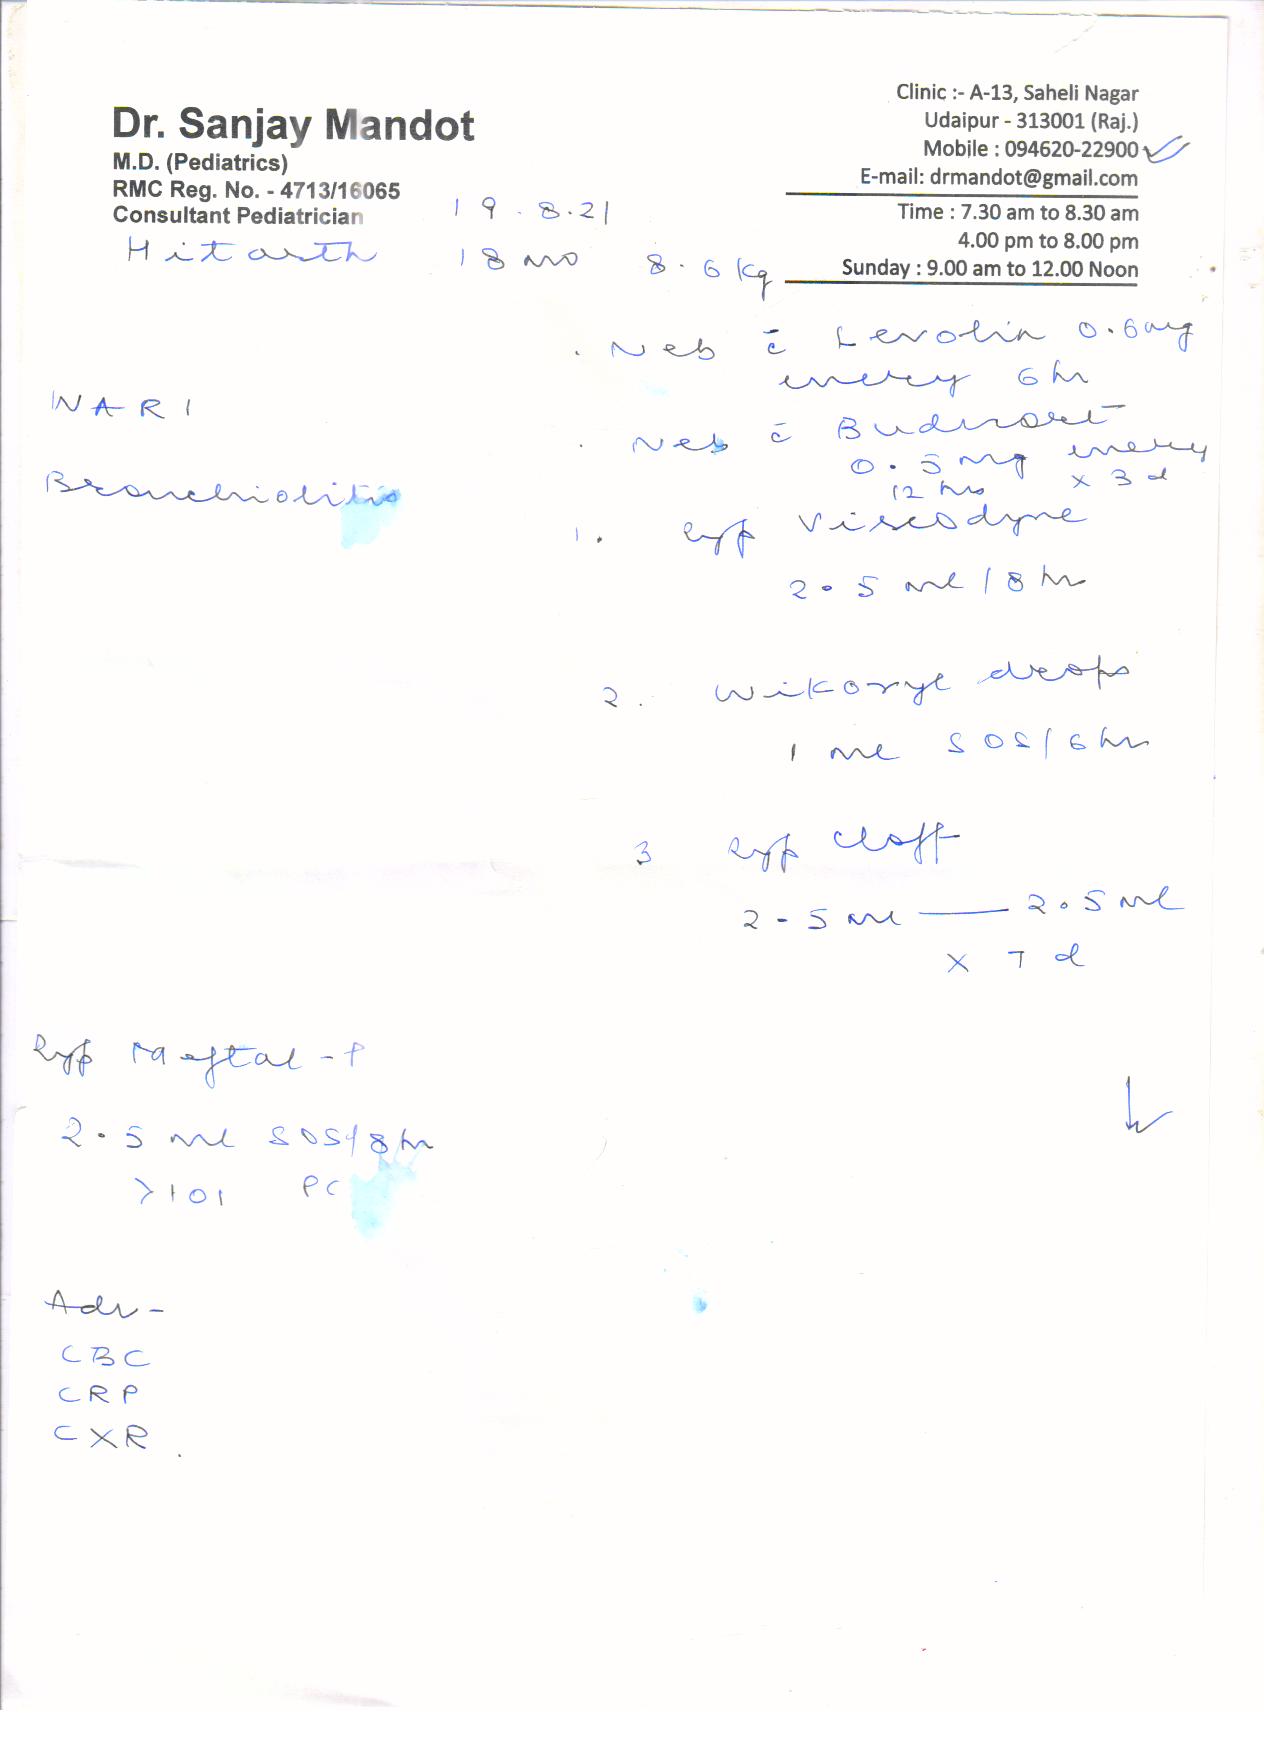 Dr. Sanjay Mandot
M.D. (Pediatrics)
RMC Reg. No. - 4713/16065
Consultant Pediatrician
Clinic :- A-13, Saheli Nagar
Udaipur - 313001 (Raj.)
Mobile : 094620-22900
E-mail: drmandot@gmail.com
Time : 7.30 am to 8.30 am
4.00 pm to 8.00 pm
Sunday : 9.00 am to 12.00 Noon
19.8.21
Hitarth 18 mo 8.6 kg
WARI
Bronchiolitis
. Neb c̄ Levolin 0.6mg
every 6 hr
. Neb c̄ Budecort
0.5 mg every
12 hrs x 3 d
1. Syp Viscodyne
2.5 ml / 8 hr
2. Wikoryl drops
1 ml SOS / 6 hr
3 Syp Cloff
2.5 ml — 2.5 ml
x 7 d
Syp Meftal-P
2.5 ml SOS / 8 hr
>101 PC
Adv -
CBC
CRP
CXR